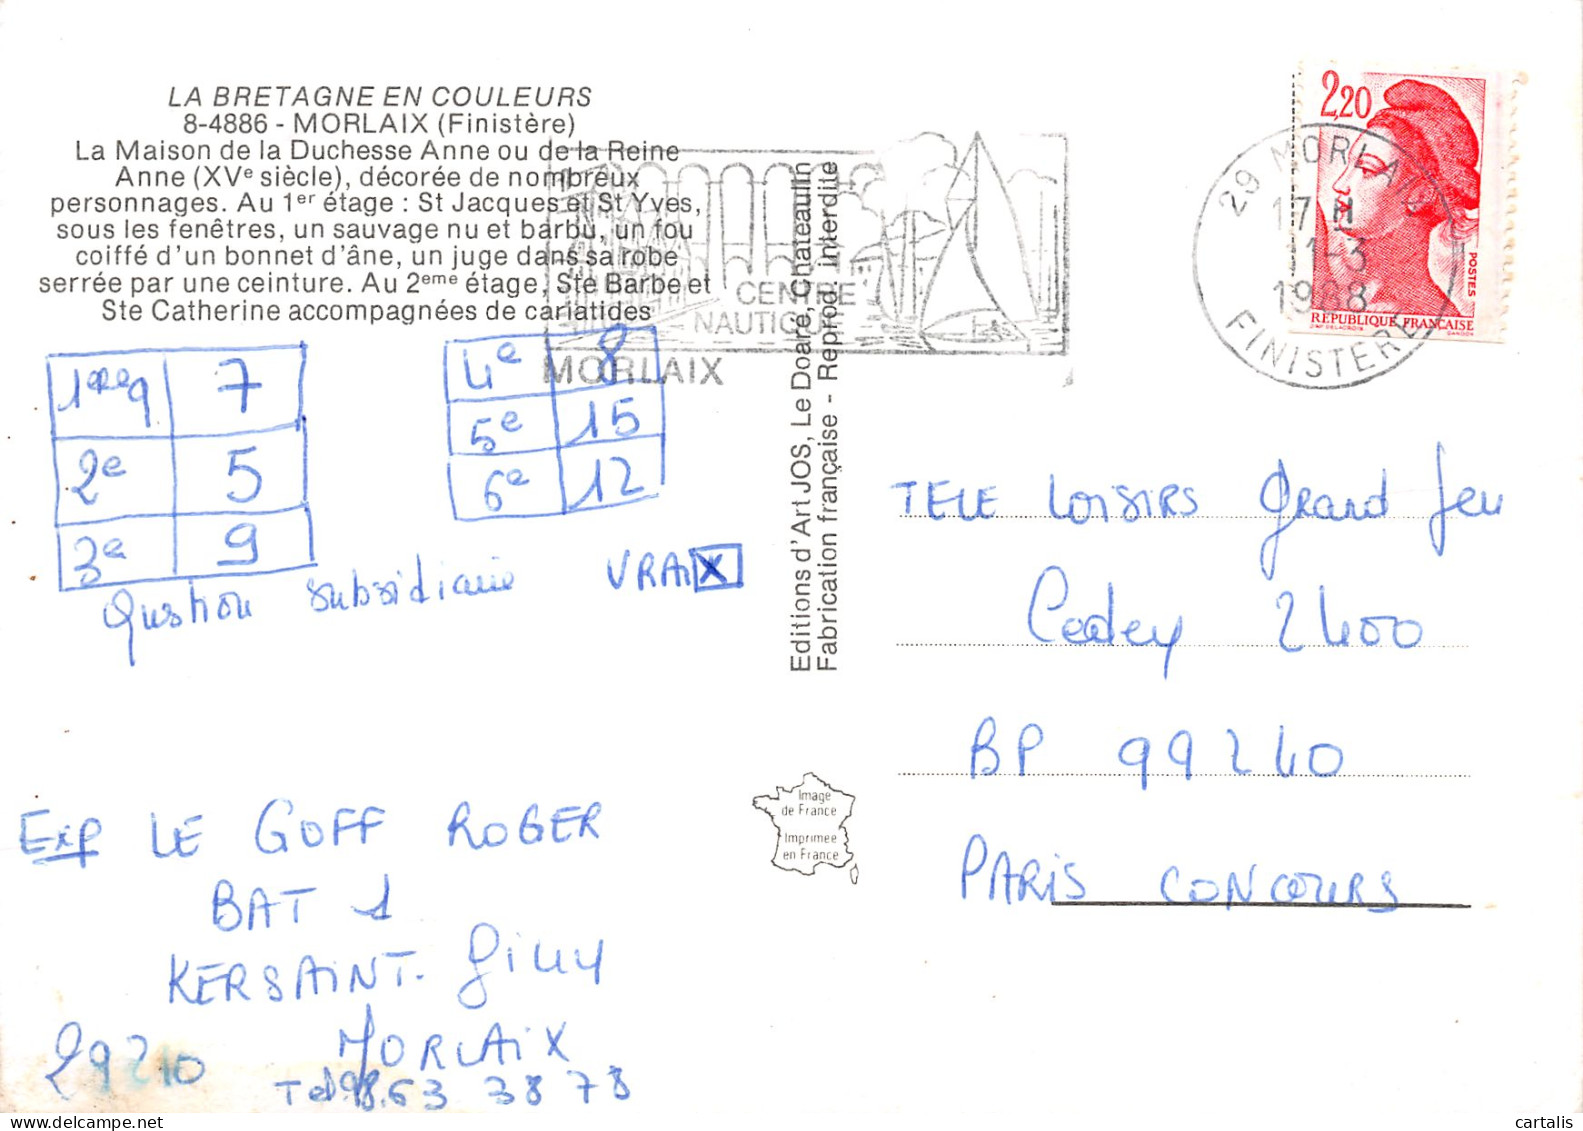 LA BRETAGNE EN COULEURS
8-4886 - MORLAIX (Finistère)
La Maison de la Duchesse Anne ou de la Reine
Anne (XVe siècle), décorée de nombreux
personnages. Au 1er étage : St Jacques et St Yves,
sous les fenêtres, un sauvage nu et barbu, un fou
coiffé d'un bonnet d'âne, un juge dans sa robe
serrée par une ceinture. Au 2eme étage, Ste Barbe et
Ste Catherine accompagnées de cariatides
CENTRE
NAUTIQUE
MORLAIX
2,20
POSTES
REPUBLIQUE FRANÇAISE
D'AP DELACROIX GANDON
29 MORLAIX
17 H
1-3
1988
FINISTERE
7
2e 5
3e 9
4e 8
5e 15
6e 12
Question subsidiaire VRAI X
Editions d'Art JOS, Le Doaré, Châteaulin
Fabrication française - Reprod. interdite
TELE LOISIRS Grand Jeu
Cedex 2400
BP 99240
PARIS CONCOURS
Image
de France
Imprimée
en France
Exp LE GOFF ROGER
BAT 1
KERSAINT-Gilly
29210 MORLAIX
Tel 98.63 38 78
cartalis